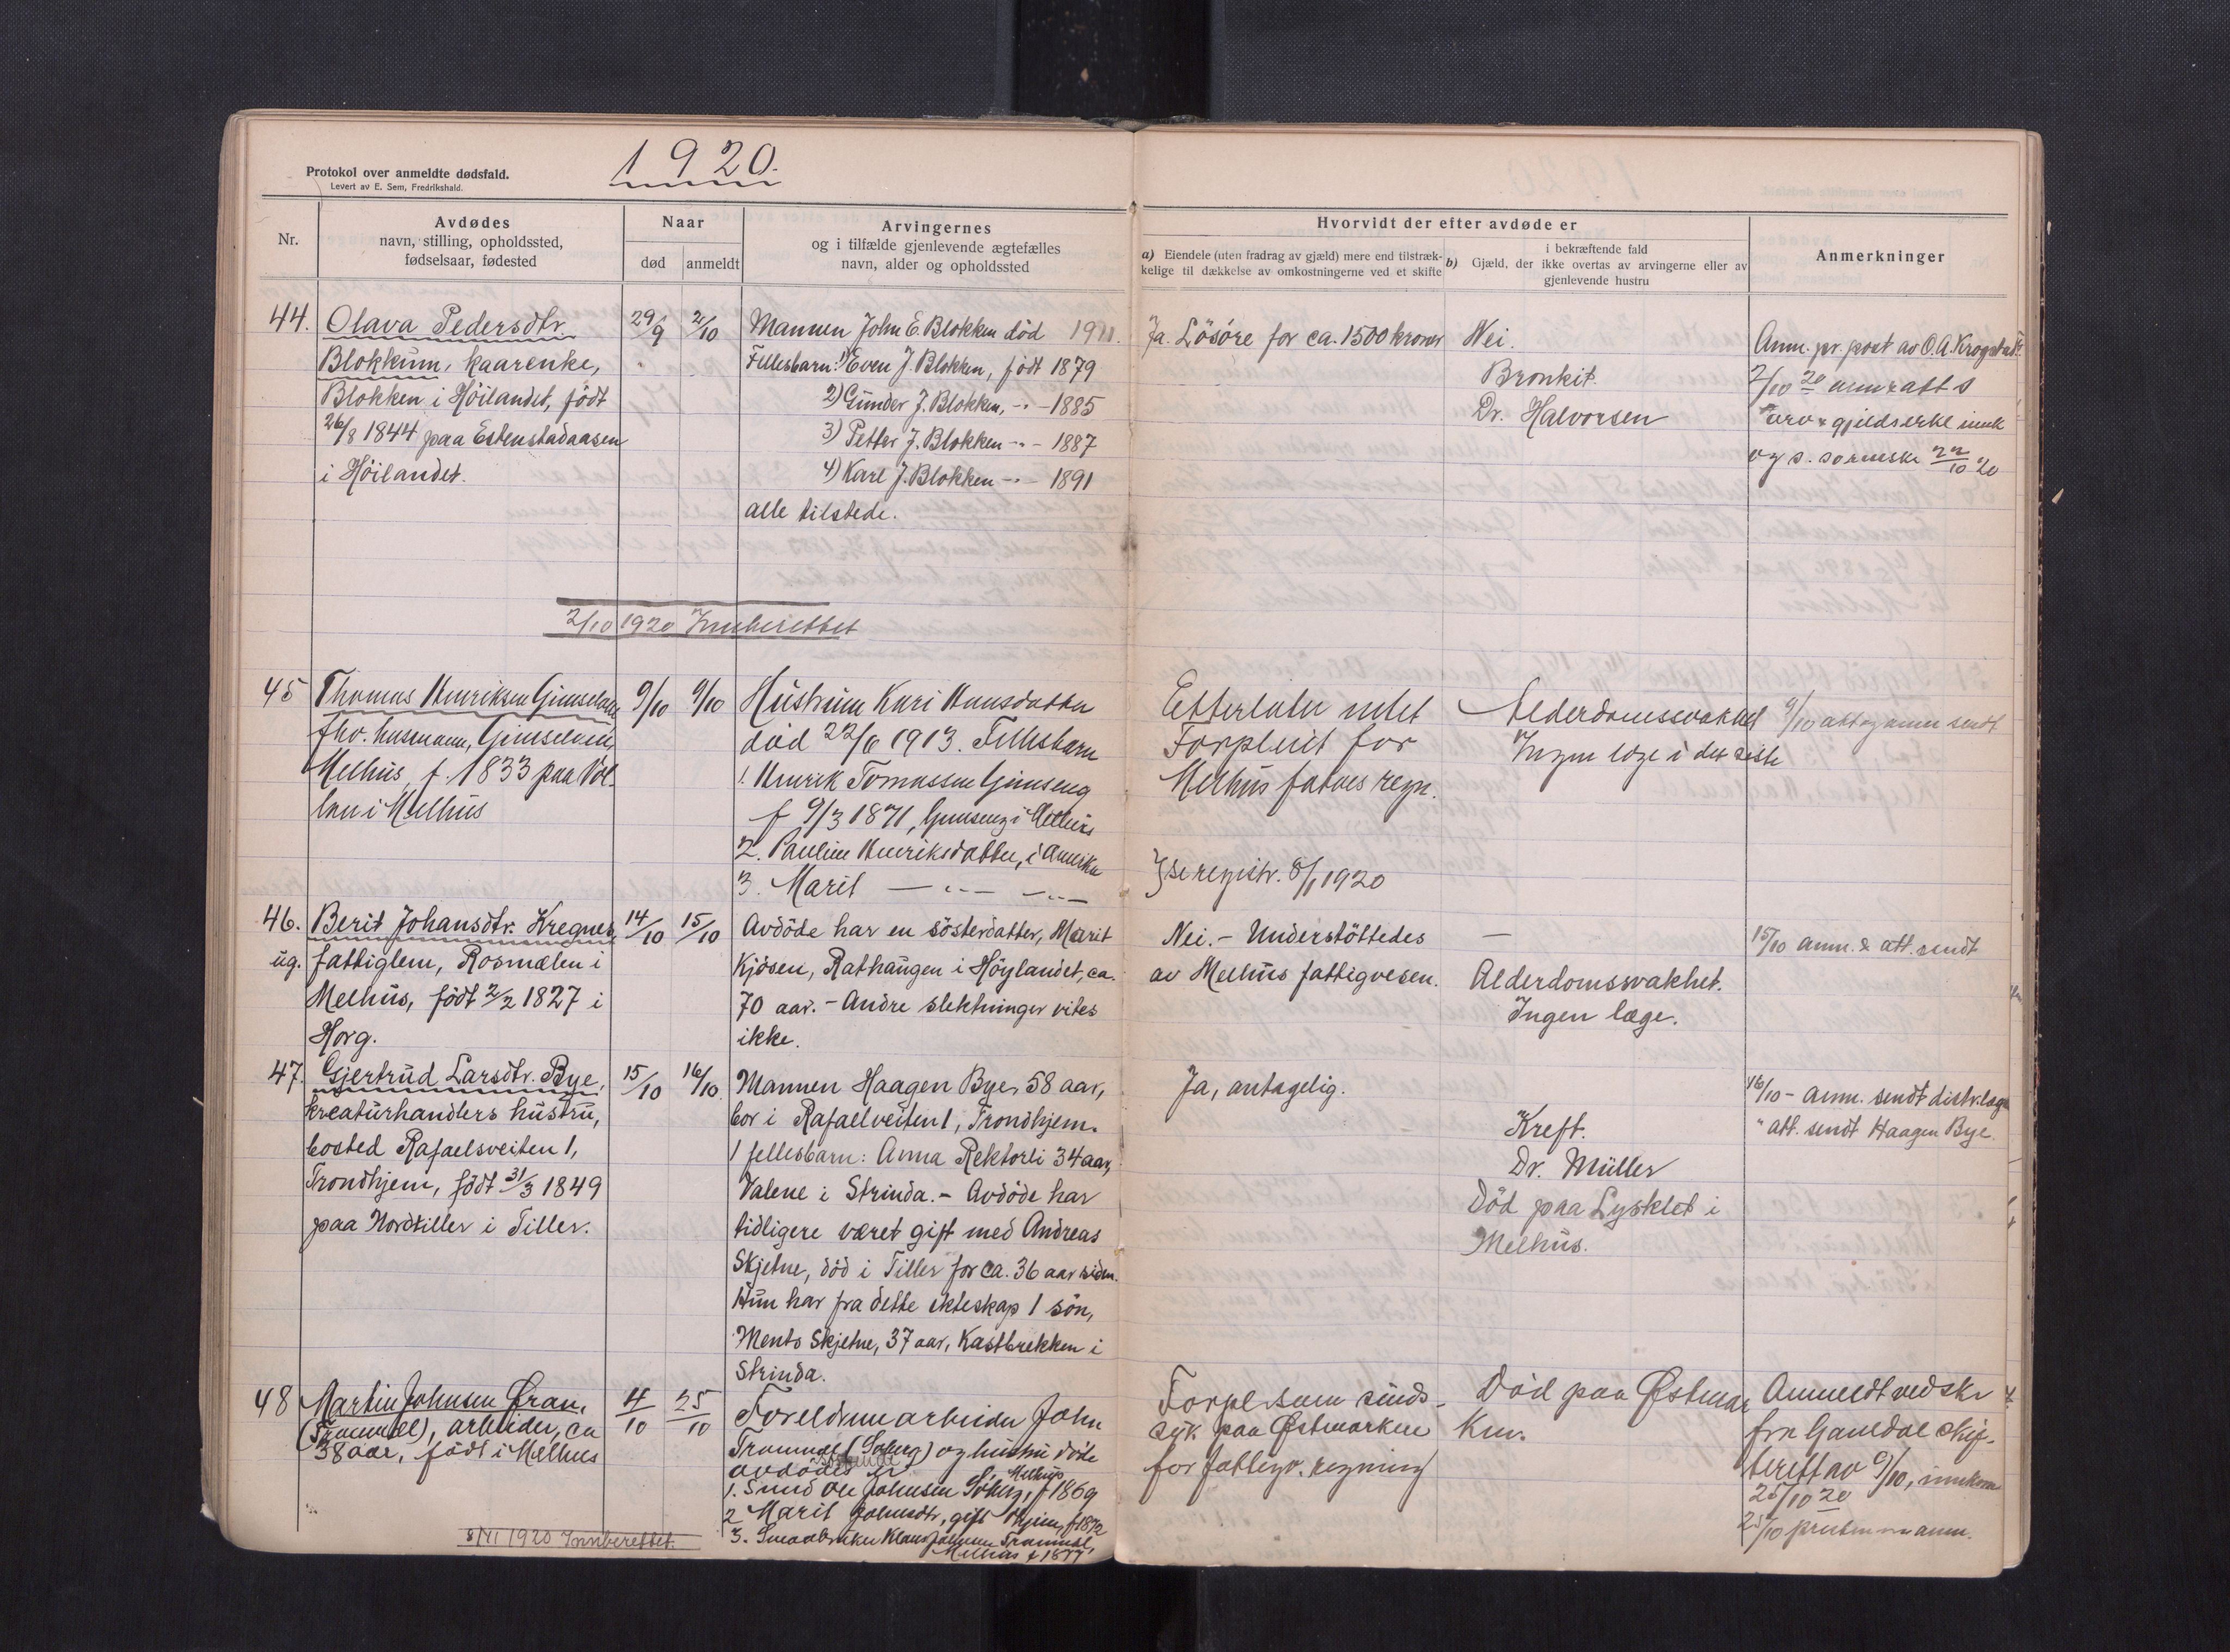 1920.
Protokol over anmeldte dødsfald.
Levert av E. Sem, Fredrikshald.
Nr.
Avdødes
navn, stilling, opholdssted,
fødselsaar, fødested
Naar
død
anmeldt
Arvingernes
og i tilfælde gjenlevende ægtefælles
navn, alder og opholdssted
Hvorvidt der efter avdøde er
a) Eiendele (uten fradrag av gjæld) mere end tilstræk-
kelige til dækkelse av omkostningerne ved et skifte
b)
i bekræftende fald
Gjæld, der ikke overtas av arvingerne eller av
gjenlevende hustru
Anmerkninger
44.
Olava Pedersdtr.
Blokkum, kaarenke,
Blokken i Höilandet, födt
26/8 1844 paa Estenstadaasen
i Höilandet.
29/9
2/10
Mannen John E. Blokken död 1911.
Fellesbarn: 1) Even J. Blokken, födt 1879
2) Gunder J. Blokken, -"- 1885
3) Petter J. Blokken -"- 1887
4) Karl J. Blokken -"- 1891
alle tilstede.
Ja. Lösöre for ca. 1500 kroner
Nei.
Bronkit.
Dr. Halvorsen
Anm. pr. post av O. A. Krogstad
2/10 20 anm & att s
arv & gjeldserkl innk
22/10 20
2/10 1920 Innberettet
45
Thomas Henriksen Gimselven
fhv. husmann, Gimselven,
Melhus, f. 1833 paa Vol-
len i Melhus
9/10
9/10
Hustruen Kari Hansdatter
död 22/6 1913. Fellesbarn
1. Henrik Tomassen Gimseng
f 9/3 1871, Gimseng i Melhus
2. Pauline Henriksdatter, i Amerika
3. Marit — -"- — -"-
Efterlater intet
Forpleiet for
Melhus fatves regn.
registr. 8/1 1920
Alderdomssvakhet
Ingen læge i det siste
9/10 att og anm sendt
46.
ug.
Berit Johansdtr. Kregnes
fattiglem, Rosmælen i
Melhus, födt 2/2 1827 i
Horg.
14/10
15/10
Avdöde har en sösterdatter, Marit
Kjösen, Rathaugen i Höylandet, ca.
70 aar. - Andre slektninger vites
ikke.
Nei. - Understöttedes
av Melhus fattigvesen.
—
Alderdomssvakhet.
Ingen læge.
15/10 anm. & att. sendt
47.
Gjertrud Larsdtr. Bye,
kreaturhandlers hustru,
bosted Rafaelsveiten 1,
Trondhjem, födt 31/3 1849
paa Nordtiller i Tiller.
15/10
16/10.
Mannen Haagen Bye, 58 aar,
bor i Rafaelveiten 1, Trondhjem.
1 fellesbarn: Anna Rektorli 34 aar,
Valene i Strinda. - Avdöde har
tidligere været gift med Andreas
Skjetne, död i Tiller for ca. 36 aar siden.
Hun har fra dette ekteskap 1 sön,
Mento Skjetne, 37 aar, Kastbrekken i
Strinda.
Ja, antagelig.
Kreft.
Dr. Müller
Död paa Lysklet i
Melhus.
16/10 - anm. sendt distr.læge
" att. sendt Haagen Bye.
48
Martin Johnsen Øran,
(Tranmæl), arbeider, ca
38 aar, födt i Melhus
4/10
25/10
Foreldrene arbeider John
Tranmæl (Söberg) og hustru döde
avdödes söskende er
1. Smed Ole Johnsen Söberg, Melhus f 1869
2 Marit Johnsdtr, gift Thjem, f 1872
3. Smaabruker Klaus Johnsen Tranmæl,
Melhus f 1877
Forpl som sinds-
syk paa Østmarken
for fattigv. regning
Död paa Østmar
ken.
Anmeldt ved skr
fra Gauldal skif-
terett av 9/10, innkom
25/10 20
25/10 anm.
8/11 1920 Innberettet.